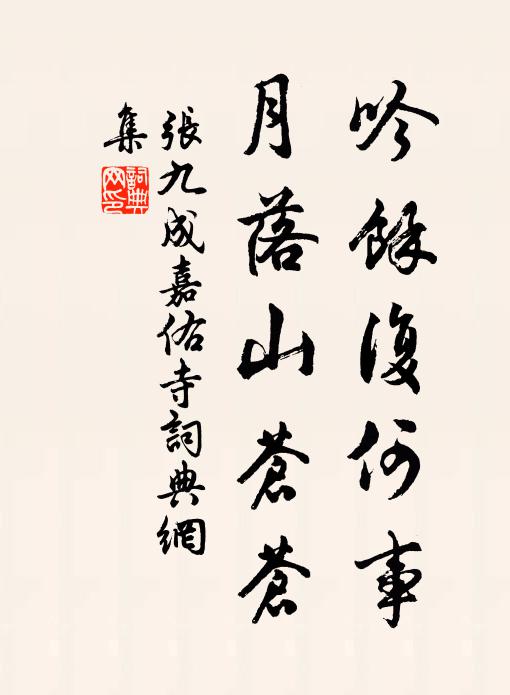 吟餘復何事
月落山蒼蒼
張九成嘉佑寺詞典網
集
詞典網印